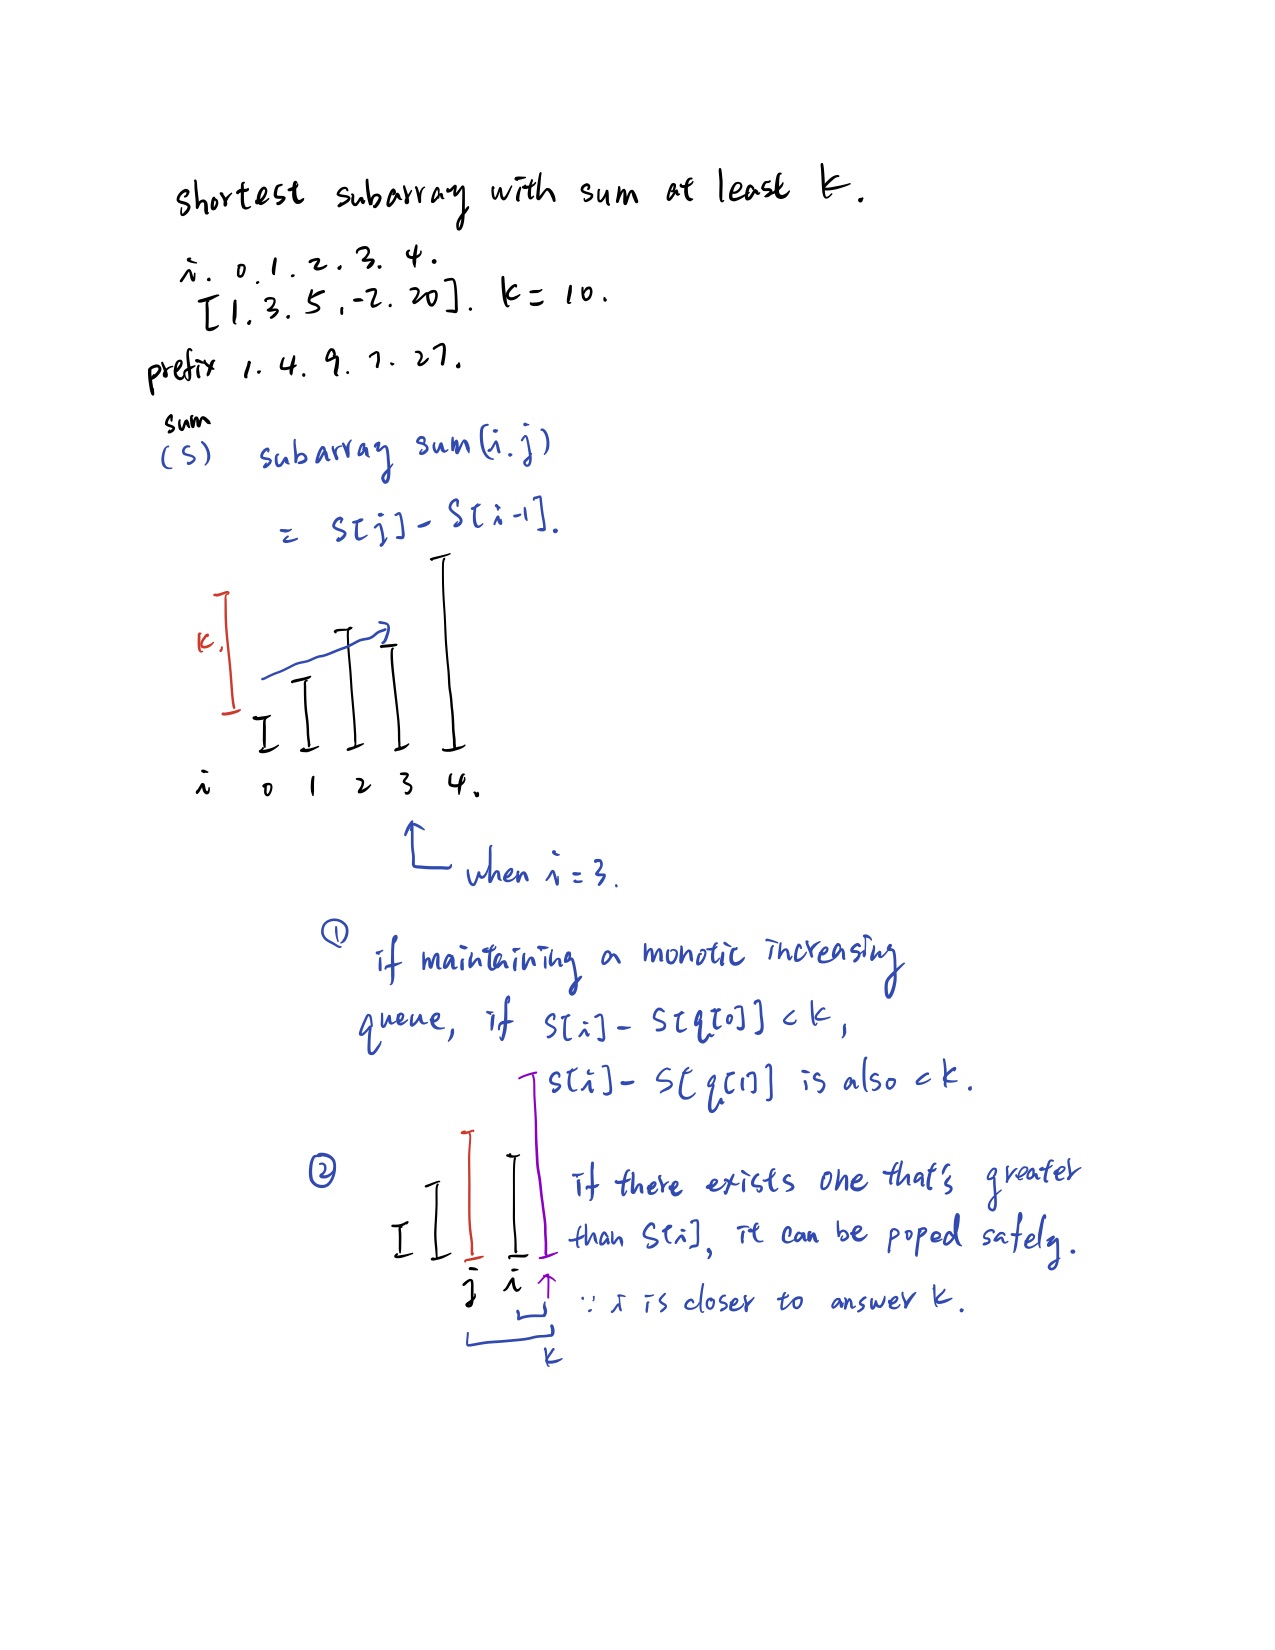 shortest subarray with sum at least k.
i. 0. 1. 2. 3. 4.
[1. 3. 5, -2. 20]. k = 10.
prefix 1. 4. 9. 7. 27.
sum
(S) subarray sum(i. j)
= S[j] - S[i-1].
k.
i 0 1 2 3 4.
when i = 3.
① if maintaining a monotic increasing
queue, if S[i] - S[q[0]] < k,
S[i] - S[q[1]] is also < k.
② if there exists one that's greater
than S[i], it can be poped safely.
j i
∵ i is closer to answer k.
k